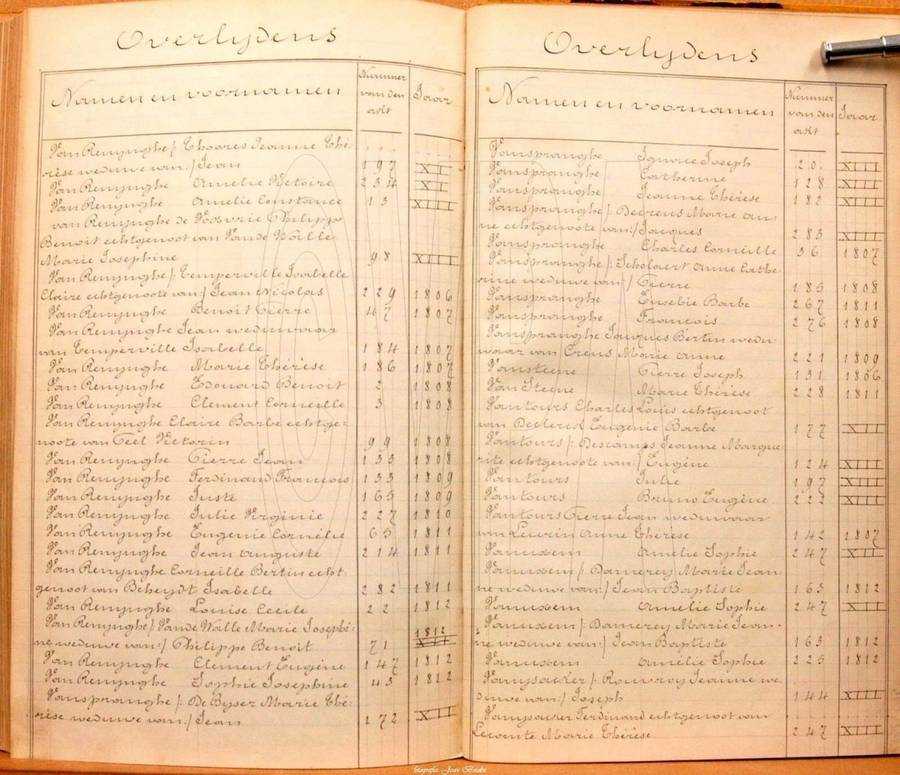 Overlijdens
Namen en voornamen
Nummer van den akt
Jaar
Van Renynghe /: Thooris Jeanne Thé-
rèse weduwe van :/ Jean 197 XII
Van Renynghe Amelie Victoire 234 XII
Van Renynghe Amelie Constance 13 XIII
van Renynghe de Voxvrie Philippe
Benoit echtgenoot van Vande Walle
Marie Josephine 98 XIII
Van Renynghe /: Temperville Isabelle
Claire echtgenoote van :/ Jean Nicolas 229 1806
Van Renynghe Benoit Pierre 47 1807
Van Renynghe Jean weduwaar
van Temperville Isabelle 184 1807
Van Renynghe Marie Thérèse 186 1807
Van Renynghe Edouard Benoit 2 1808
Van Renynghe Clement Corneille 3 1808
Van Renynghe Claire Barbe echtge-
noote van Teel Victorin 99 1808
Van Renynghe Pierre Jean 133 1808
Van Renynghe Ferdinand François 133 1809
Van Renynghe Juste 165 1809
Van Renynghe Julie Virginie 227 1810
Van Renynghe Eugenie Cornélie 63 1811
Van Renynghe Jean Auguste 214 1811
Van Renynghe Corneille Bertin echt-
genoot van Beheydt Isabelle 282 1811
Van Renynghe Louise Cecile 22 1812
Van Renynghe /: Vande Walle Marie Josephi- 1812
ne weduwe van :/ Philippe Benoit 71
Van Renynghe Clement Eugène 147 1812
Van Renynghe Sophie Josephine 43 1812
Vanspranghe /: De Byser Marie Thé-
rèse weduwe van :/ Jean 172 XII
Overlijdens
Namen en voornamen
Nummer van den akt
Jaar
Vanspranghe Ignace Joseph 20 XIII
Vanspranghe Catherine 128 XIII
Vanspranghe Jeanne Thérèse 182 XIII
Vanspranghe /: Decreus Marie An-
ne echtgenoote van :/ Jacques 283 XIII
Vanspranghe Charles Corneille 36 1807
Vanspranghe /: Scholaert Anne Cathe-
rine weduwe van :/ Pierre 185 1808
Vanspranghe Eusebie Barbe 267 1811
Vanspranghe François 276 1808
Vanspranghe Jacques Bertin wedu-
waar van Creus Marie Anne 221 1809
Vansteene Pierre Joseph 131 1806
Van Steene Marie Thérèse 228 1811
Vantours Charles Louis echtgenoot
van Declerck Eugénie Barbe 177 XII
Vantours /: Descamps Jeanne Margue-
rite echtgenoote van :/ Eugène 124 XIII
Vantours Julie 197 XIII
Vantours Bruno Eugène 222 XIII
Vantours Pierre Jean weduwaar
van Leuvrin Anne Thérèse 142 1807
Vanuxem Amelie Sophie 247 XII
Vanuxem /: Damerey Marie Jean-
ne weduwe van :/ Jean Baptiste 163 1812
Vanuxem Amelie Sophie 247 XII
Vanuxem /: Damerey Marie Jean-
ne weduwe van :/ Jean Baptiste 163 1812
Vanuxem Amélie Sophie 225 1812
Vanysacker /: Rouvroy Jeanne we-
duwe van :/ Joseph 144 XIII
Vanysacker Ferdinand echtgenoot van
Lecomte Marie Thérèse 247 XIII
fotografie Joan Boidin